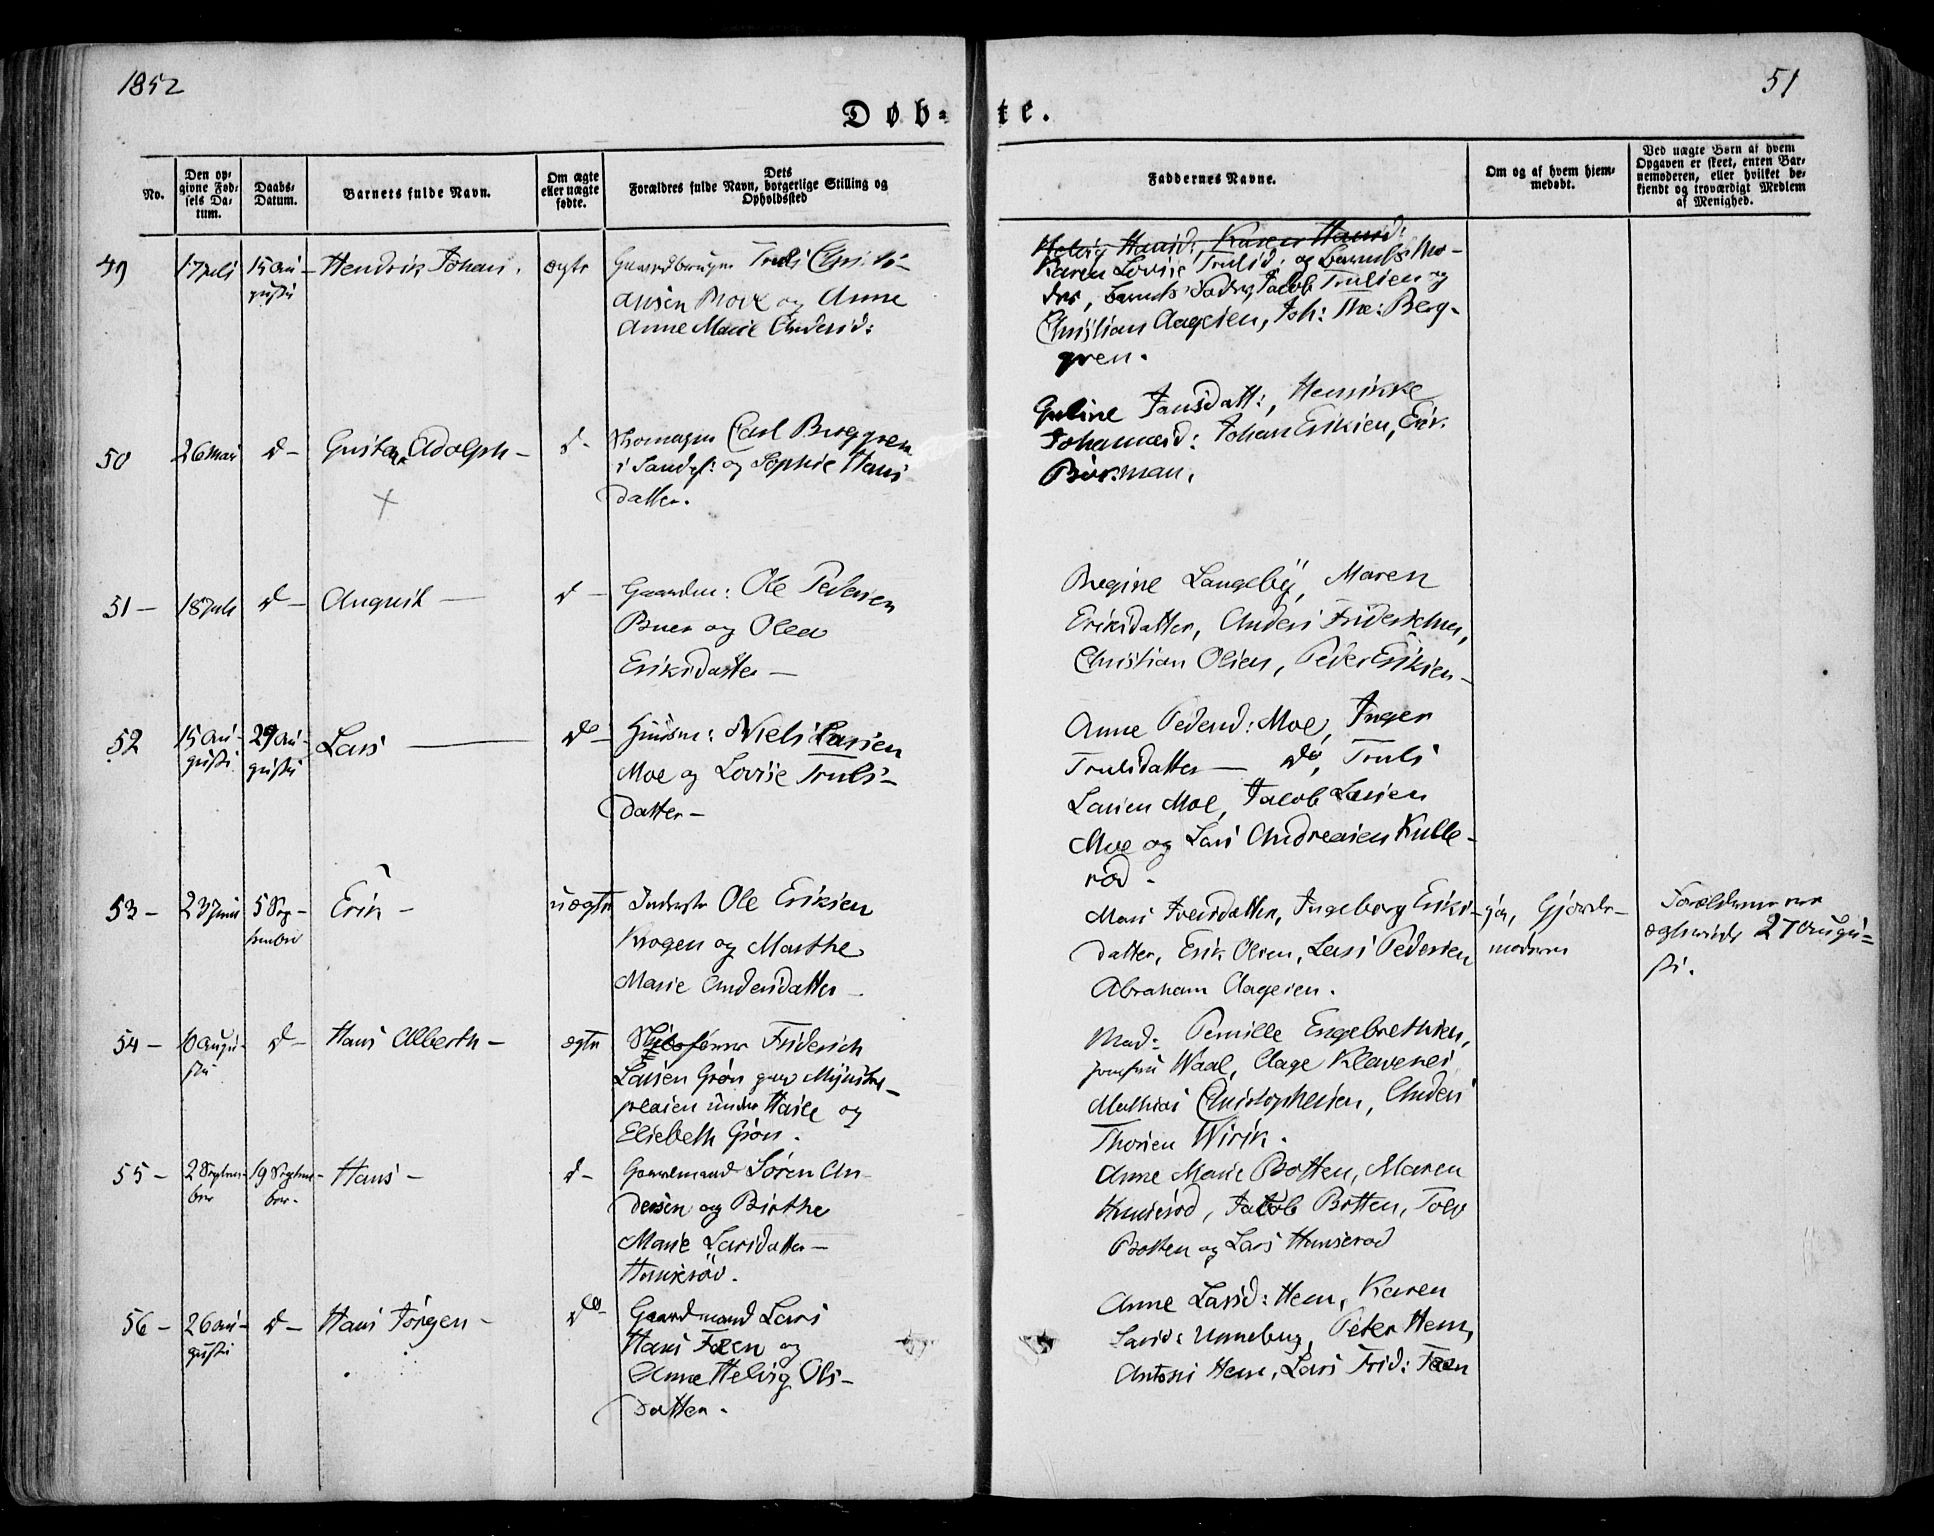 1852
51
Døb-te.
No.
Den op-
givne Fød-
sels Da-
tum.
Daabs-
Datum.
Barnets fulde Navn.
Om ægte
eller uægte
fødte.
Dets
Forældres fulde Navn, borgerlige Stilling og
Opholdssted
Faddernes Navne.
Om og af hvem hjem-
medøbt.
Ved uægte Børn af hvem
Opgaven er skeet, enten Bar-
nemoderen, eller hvilket be-
kjendt og troværdigt Medlem
af Menighed.
49
17 Juli
15 Au-
gusti
Hendrik Johan.
ægte
Gaardbruger Truls Christi-
ansen Bove og Anne
Anne Marie Andersd:
Helvig Hansd: Karen Hansd:
Karen Lovise Trulsd: og barnets Mo-
der, barnets Fader, Jacob Trulsen og
Christian Aagesen, Joh: Berg-
gren.
50
26 Mai
d-
Gustav Adolph-
d-
Carl Berggren
i Sandef: og Sophie Hans
datter.
Guline Jansdatt:, Henrikke
Johannesd: Johan Eriksen, Erik
Bökman.
51-
18 Juli
d-
August-
d-
Gaardm: Ole Pedersen
Buer og Olea
Eriksdatter-
Regine Langeby, Maren
Eriksdatter, Anders Friderichsen,
Christian Olsen, Peder Eriksen-
52
15 Au-
gusti
29 Au-
gusti
Lars-
do-
Huusm: Niels Larsen
Moe og Lovise Truls-
datter-
Anne Pedersd: Moe, Inger
Trulsdatter- do, Truls
Larsen Moe, Jacob Larsen
Moe og Lars Andreasen Kulle-
rød.
53-
23 Juni
5 Sep-
tembri
Erik-
uægte
Inderste Ole Eriksen
Krogen og Marthe
Marie Andersdatter-
Mari Iversdatter, Ingeborg Eriks-
datter, Erik Olsen, Lars Pedersen
Abraham Aagesen.
ja, Gjorde-
moderen
Forældrene ere
ægteviede 27 Augu=
sti.
54-
10 Augu-
sti
d-
Hans Alberth-
ægte
Skibsfører Friderich
Larsen Grøn
under Hasle og
Elisebeth Grøn.
Mad: Pernille Engebrethsen,
jomfru Waal, Aage Klavenes
Mathias Christophersen, Anders
Thorsen Wirik.
55-
2 Septem-
ber
19 Septem-
ber.
Hans-
d-
Gaardmand Søren An-
dersen og Birthe
Marie Larsdatter-
Hanserød.
Anne Marie Botten, Maren
Hunserød, Jacob Botten, Tolv
Botten og Lars Hanserød
56-
26 Au-
gusti
d-
Hans Jørgen-
do-
Gaardmand Lars
Hans Fæen og
Anne Helvig Ols-
datter.
Anne Larsd: Hem, Karen
Larsd: Unneberg, Peter Hem,
Antoni Hem, Lars Frid: Fæen